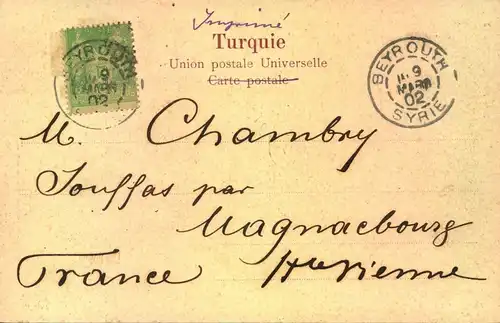 Imprimé
Turquie
Union postale Universelle
Carte postale
BEYROUTH
9
MARS
02
SYRIE
BEYROUTH
9
MARS
02
M. Chambry
Souffas par
Magnacbourg
France Hte Vienne